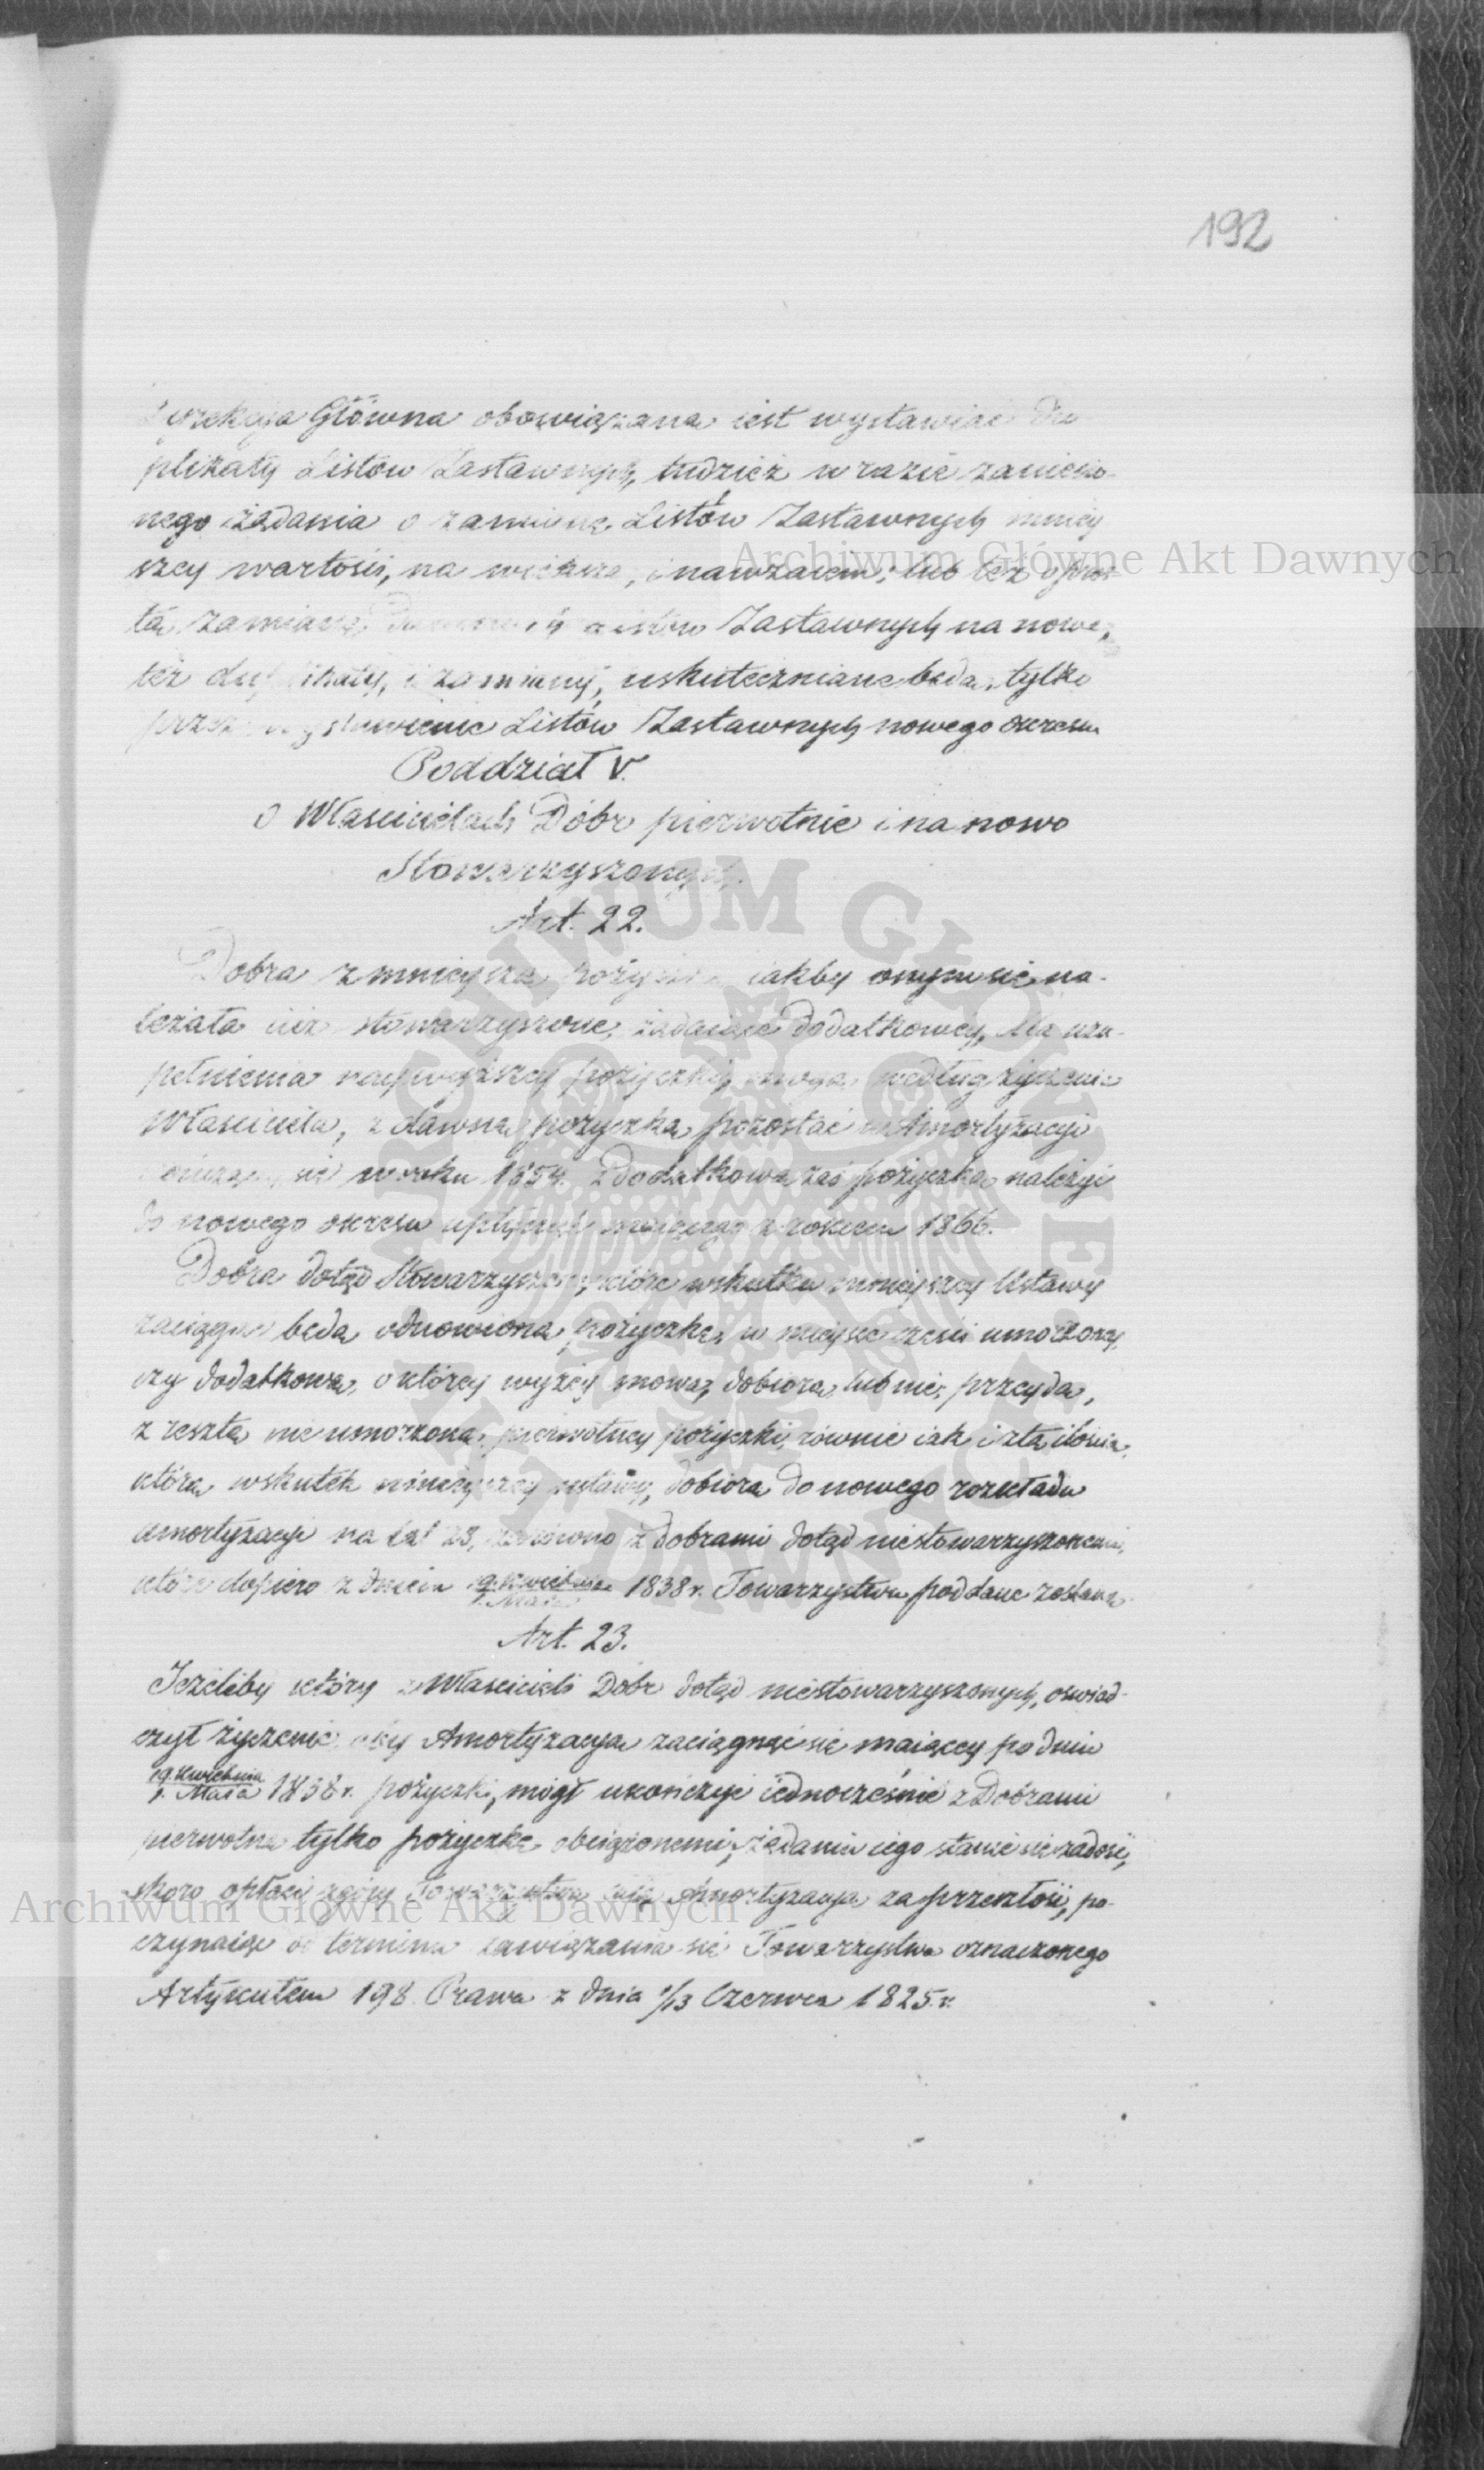 192
Dyrekcya Główna obowiązana iest wystawiać Du
plikaty Listów Zastawnych, tudzież w razie zaniesio-
nego żądania o zamianę Listów Zastawnych mniey
szey wartości, na większe, i nawzaiem, lub też o pros-
tą zamianę Listów Zastawnych na nowe,
też duplikaty, i zamiany, uskuteczniane będą, tylko
przez wystawienie Listów Zastawnych nowego okresu
Poddział V.
O Właścicielach Dóbr pierwotnie i na nowo
Stowarzyszonych.
Art. 22.
Dobra z mnieyszą pożyczką iakby onym się na-
leżała iuż stowarzyszone, żądaiące dodatkowey, dla uzu-
pełnienia naywyższey pożyczki, mogą według życzenia
Właściciela, z dawną pożyczką pozostać w Amortyzacyi
kończącey się w roku 1854. z Dodatkową zaś pożyczką należyć
do nowego okresu upłynąć maiącego z rokiem 1866.
Dobra dotąd Stowarzyszone, które wskutku ninieyszey Ustawy
zaciągną będą odnowioną pożyczkę, w mieysce części umorzoney,
czy dodatkową, o którey wyżey mowa, dobiorą, lub nie, przeydą,
z resztą nie umorzoną, pierwotney pożyczki, równie iak i z tą ilością,
którą, wskutek ninieyszey ustawy, dobiorą do nowego rozkładu
amortyzacyi na lat 28, zarówno z dobrami dotąd niestowarzyszonemi,
które dopiero z dniem 19. Kwietnia 1838 r. Towarzystwu poddane zostaną.
1. Maia
Art. 23.
Jeżeliby który z Właścicieli Dóbr dotąd niestowarzyszonych, oświad-
czył życzenie aby Amortyzacya zaciągnąć się maiącey po dniu
19. Kwietnia 1838 r. pożyczki, mógł ukończyć iednocześnie z Dobrami
1. Maia
pierwotną tylko pożyczką obciążonemi, żądaniu iego stanie się zadość,
skoro opłaci z góry Towarzystwu całą Amortyzacyą za przeszłość, po-
czynaiąc od terminu zawiązania się Towarzystwa oznaczonego
Artykułem 198. Prawa z dnia 1/13 Czerwca 1825 r.
Archiwum Główne Akt Dawnych
Archiwum Główne Akt Dawnych
ARCHIWUM GŁÓWNE AKT DAWNYCH